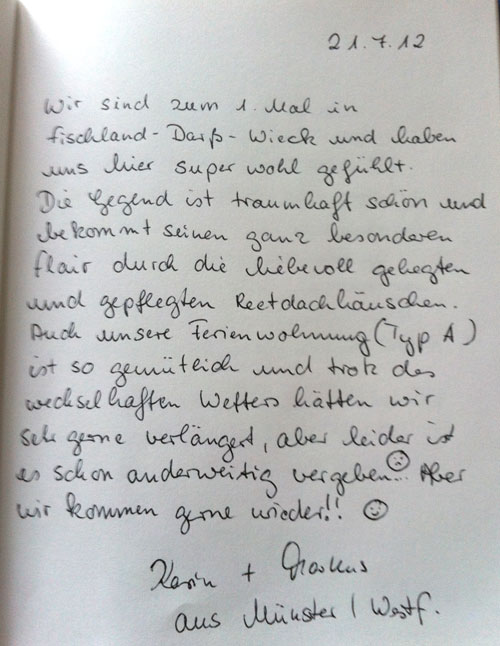 21.7.12
Wir sind zum 1. Mal in
Fischland-Darß-Wieck und haben
uns hier super wohl gefühlt.
Die Gegend ist traumhaft schön und
bekommt seinen ganz besonderen
Flair durch die liebevoll gehegten
und gepflegten Reetdachhäuschen.
Auch unsere Ferienwohnung (Typ A)
ist so gemütlich und trotz des
wechselhaften Wetters hätten wir
sehr gerne verlängert, aber leider ist
es schon anderweitig vergeben ☹... Aber
wir kommen gerne wieder!! ☺
Karin + Markus
aus Münster / Westf.